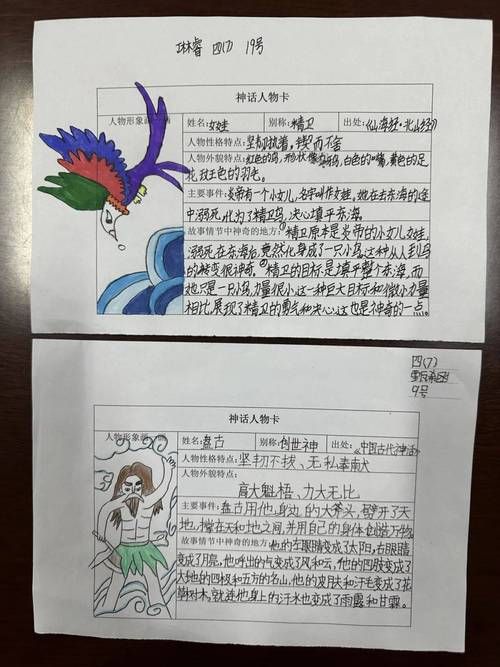 琳睿 四(7) 19号
神话人物卡
人物形象画一画 姓名:女娃 别称:精卫 出处:《山海经·北山经》
人物性格特点:坚韧执着,锲而不舍
人物外貌特点:红色的鸟,形状像乌鸦,白色的嘴,黄色的足
花斑色的羽毛。
主要事件:炎帝有一个小女儿,名字叫作女娃。她在去东海的途
中溺死,化为了精卫鸟,决心填平东海。
故事情节中神奇的地方:①精卫原本是炎帝的小女儿女娃,
溺死在东海后,竟然化身成了一只小鸟,这种从人到鸟
的转变很神奇。②精卫的目标是填平整个东海,而
她只是一只小鸟,力量很小,这一种巨大目标和微小力量
相比,展现了精卫的勇气和决心,这也是神奇的一点……
四(7)
9号
神话人物卡
人物形象画一画 姓名:盘古 别称:创世神 出处:《中国古代神话》
人物性格特点:坚韧不拔、无私奉献
人物外貌特点:
高大魁梧、力大无比
主要事件:盘古用他身边的大斧头,劈开了天
地,撑在天和地之间,并用自己的身体创造万物。
故事情节中神奇的地方:他的左眼睛变成了太阳,右眼睛
变成了月亮,他呼出的气变成了风和云,他的四肢变成了
大地的四极和五方的名山,他的皮肤和汗毛变成了花
草树木,就连他身上的汗水也变成了雨露和甘霖。